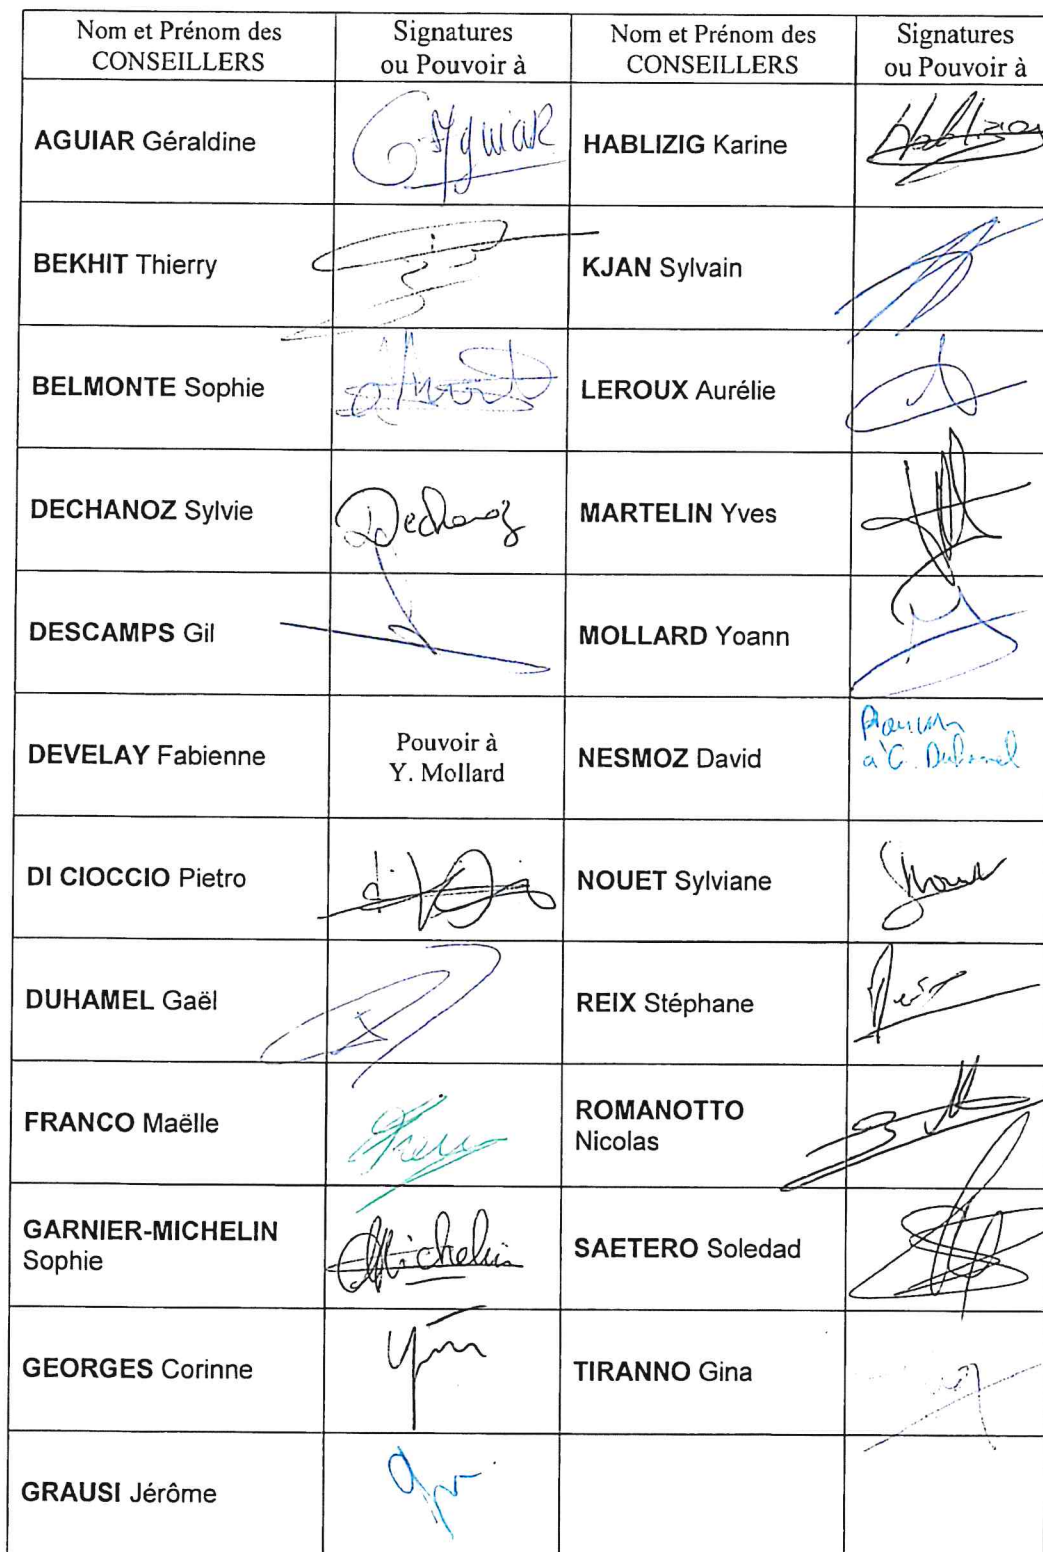 Nom et Prénom des
CONSEILLERS
Signatures
ou Pouvoir à
Nom et Prénom des
CONSEILLERS
Signatures
ou Pouvoir à
AGUIAR Géraldine
GAguiar
HABLIZIG Karine
Hablizig
BEKHIT Thierry
KJAN Sylvain
BELMONTE Sophie
LEROUX Aurélie
DECHANOZ Sylvie
Dechanoz
MARTELIN Yves
DESCAMPS Gil
MOLLARD Yoann
DEVELAY Fabienne
Pouvoir à
Y. Mollard
NESMOZ David
Pouvoir
à G. Duhamel
DI CIOCCIO Pietro
NOUET Sylviane
DUHAMEL Gaël
REIX Stéphane
Reix
FRANCO Maëlle
ROMANOTTO
Nicolas
GARNIER-MICHELIN
Sophie
Michelin
SAETERO Soledad
GEORGES Corinne
TIRANNO Gina
GRAUSI Jérôme